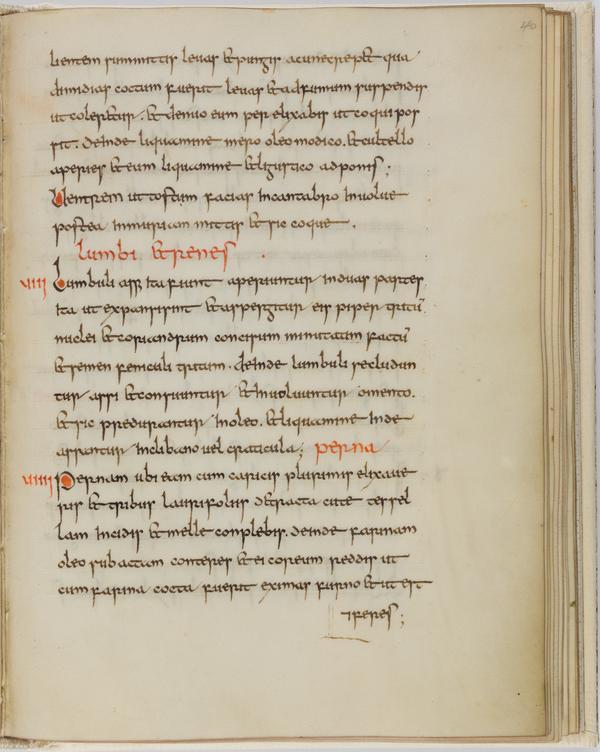 40
lientem summittis levas & pungis acu necrep& qua
dimidias coctum fuerit levas & ad fumum suspendis
ut coler&ur. & denuo eum per elixabis ut coqui pos
sit. deinde liquamine mero oleo modico. & cultello
aperies & eum liquamine & ligustico adponis;
Uentrem ut tostum facias in cantabro involve
postea in muriam mittis & sic coque.
lumbi & renes.
VIII Lumbuli assi ita fiunt aperiuntur in duas partes
ita ut expansi sint & aspergitur eis piper tritū
nuclei & coriandrum concisum minutatim factū
& semen feniculi tritum. deinde lumbuli recludun
tur assi & consuuntur & involvuntur omento.
& sic predurantur in oleo. & liquamine inde
assantur in clibano vel craticula; perna
VIIII Pernam ubi eam cum caricis plurimis elixave
ris & tribus lauri foliis d&racta cute tessel
lam incidis & melle conplebis. deinde farinam
oleo subactam conteres & ei coreum reddis ut
cum farina cocta fuerit eximas furno & ut est